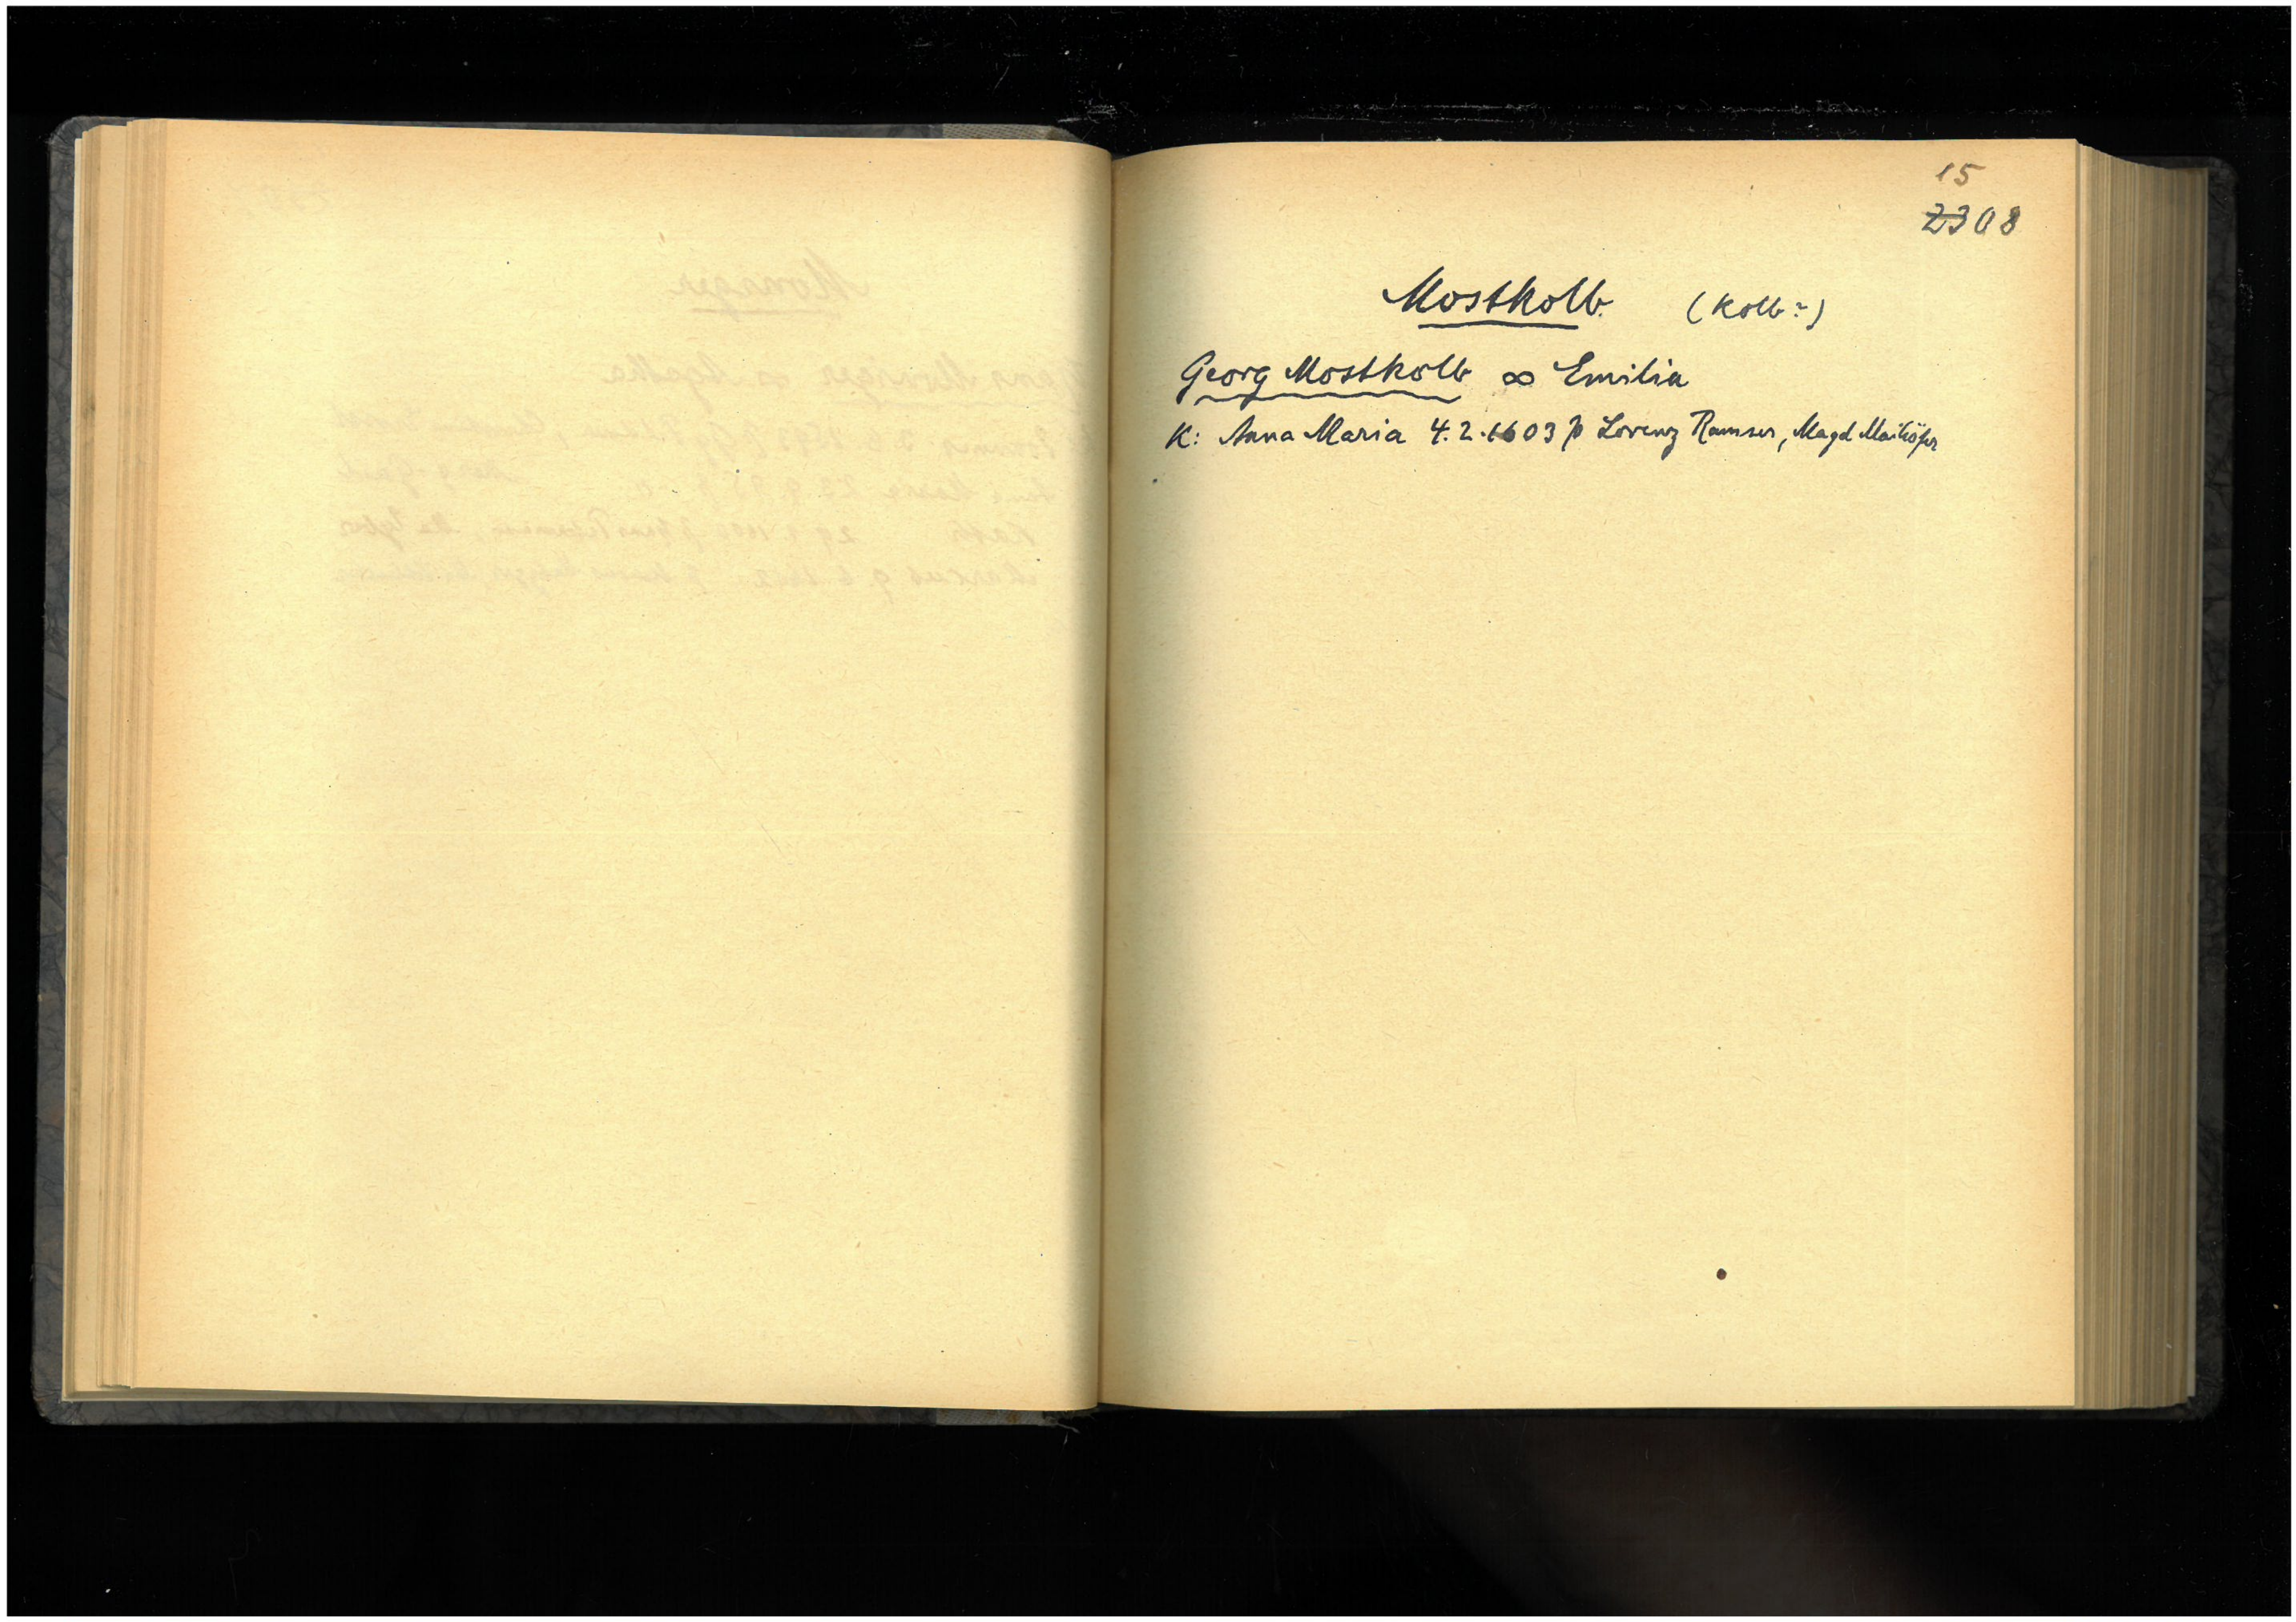 15
2308
Mostkolb. (Kolb?)
Georg Mostkolb ∞ Emilia
K: Anna Maria 4.2.1603 p Lorenz Ramser, Magd Maihöfer